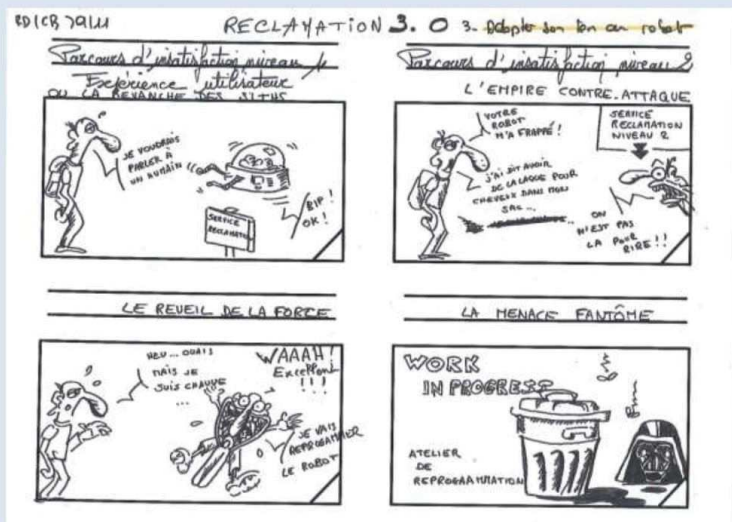 RECLAMATION 3.0
3. Adapter son ton au robot
Parcours d'insatisfaction niveau 1
Expérience utilisateur
OU LA REVANCHE DES SITHS
JE VOUDRAIS
PARLER À
UN HUMAIN
BIP!
OK!
SERVICE
RECLAMATION
Parcours d'insatisfaction niveau 2
L'EMPIRE CONTRE-ATTAQUE
VOTRE
ROBOT
M'A FRAPPÉ!
SERVICE
RECLAMATION
NIVEAU 2
J'AI DIT AVOIR
DE LA LAQUE POUR
CHEVEUX DANS MON
SAC...
ON
N'EST PAS
LA POUR
RIRE!!
LE REVEIL DE LA FORCE
HEU... OUAIS
MAIS JE
SUIS CHAUVE
...
WAAAH!
Excellent
!!!
JE VAIS
REPROGRAMMER
LE ROBOT
LA MENACE FANTÔME
WORK
IN PROGRESS
ATELIER
DE
REPROGRAMMATION